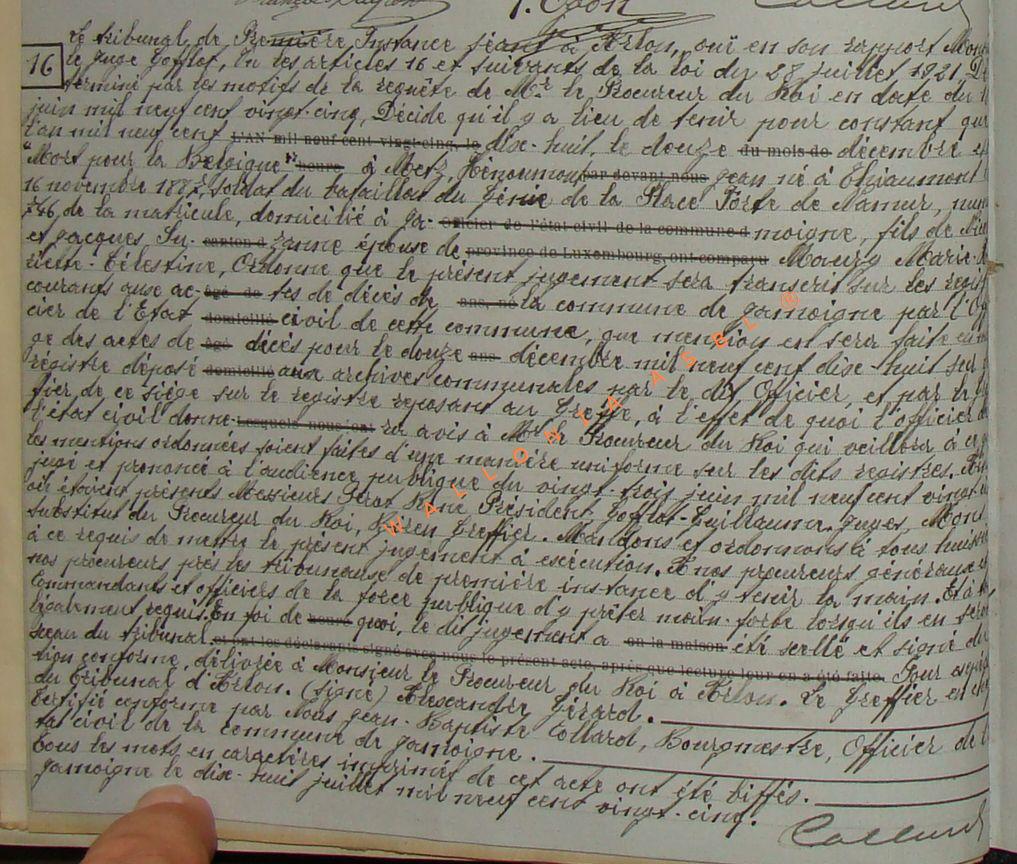 T. Goon
Collard
16
Le tribunal de Première Instance séant à Arlon, ouï en son rapport Mons
le Juge Goffot, Vu les articles 16 et suivants de la loi du 28 juillet 1921, Dé
terminé par les motifs de la requête de Mr le Procureur du Roi en date du
juin mil neuf cent vingt-cinq, Décide qu'il y a lieu de tenir pour constant que
l'an mil neuf cent L'AN mil neuf cent vingt-cinq, le dix-huit, le douze du mois de décembre est
"Mort pour la Belgique" heure à Metz, Hénoumont par devant nous Jean né à Thiaumont
16 novembre 1887, soldat du bataillon du Génie de la Place Forte de Namur, num
746, de la matricule, domicilié à Ja- Officier de l'état civil de la commune d moigne, fils de
et Jacques Su- canton d zanne épouse de province de Luxembourg, ont comparu Maury Marie-
riette-Célestine, Ordonne que le présent jugement sera transcrit sur les regis
courants aux ac- âgé de tes de décès de ans, né la commune de Jamoigne par l'Of
cier de l'Etat domicilié civil de cette commune, que mention en sera faite en
ge des actes de âgé décès pour le douze ans décembre mil neuf cent dix-huit sur
registre déposé domicilié aux archives communales par le dit Officier, et par le G
fier de ce siège sur le registre reposant au Greffe, à l'effet de quoi l'officier d
l'état civil donne- Lesquels nous ont ra avis à Mr le Procureur du Roi qui veillera à ce q
les mentions ordonnées soient faites d'une manière uniforme sur les dits registres.
jugé et prononcé à l'audience publique du vingt-trois juin mil neuf cent vingt-c
où étaient présents Messieurs Président Goffot-Guillaume. Juges, Mons.
substitut du Procureur du Roi, Greffier. Mandons et ordonnons à tous huiss
à ce requis de mettre le présent jugement à exécution. A nos procureurs généraux et
nos procureurs près les tribunaux de première instance d'y tenir la main. Et à t
Commandants et officiers de la force publique d'y prêter main-forte lorsqu'ils en seron
légalement requis. En foi de heure quoi, le dit jugement a en la maison été scellé et signé du
sceau du tribunal et ont les déclarants signé avec nous le présent acte, après que lecture leur en a été faite. Pour expédi
tion conforme, délivrée à Monsieur le Procureur du Roi à Arlon. Le Greffier en ch
du Tribunal d'Arlon. (Signé) Alexandre Gérard.
Certifié conforme par Nous Jean-Baptiste Collard, Bourgmestre, Officier de l'é
tat civil de la commune de Jamoigne.
Tous les mots en caractères imprimés de cet acte ont été biffés.
Jamoigne le dix-huit juillet mil neuf cent vingt-cinq.
Collard
WALLONIA ASBL ®